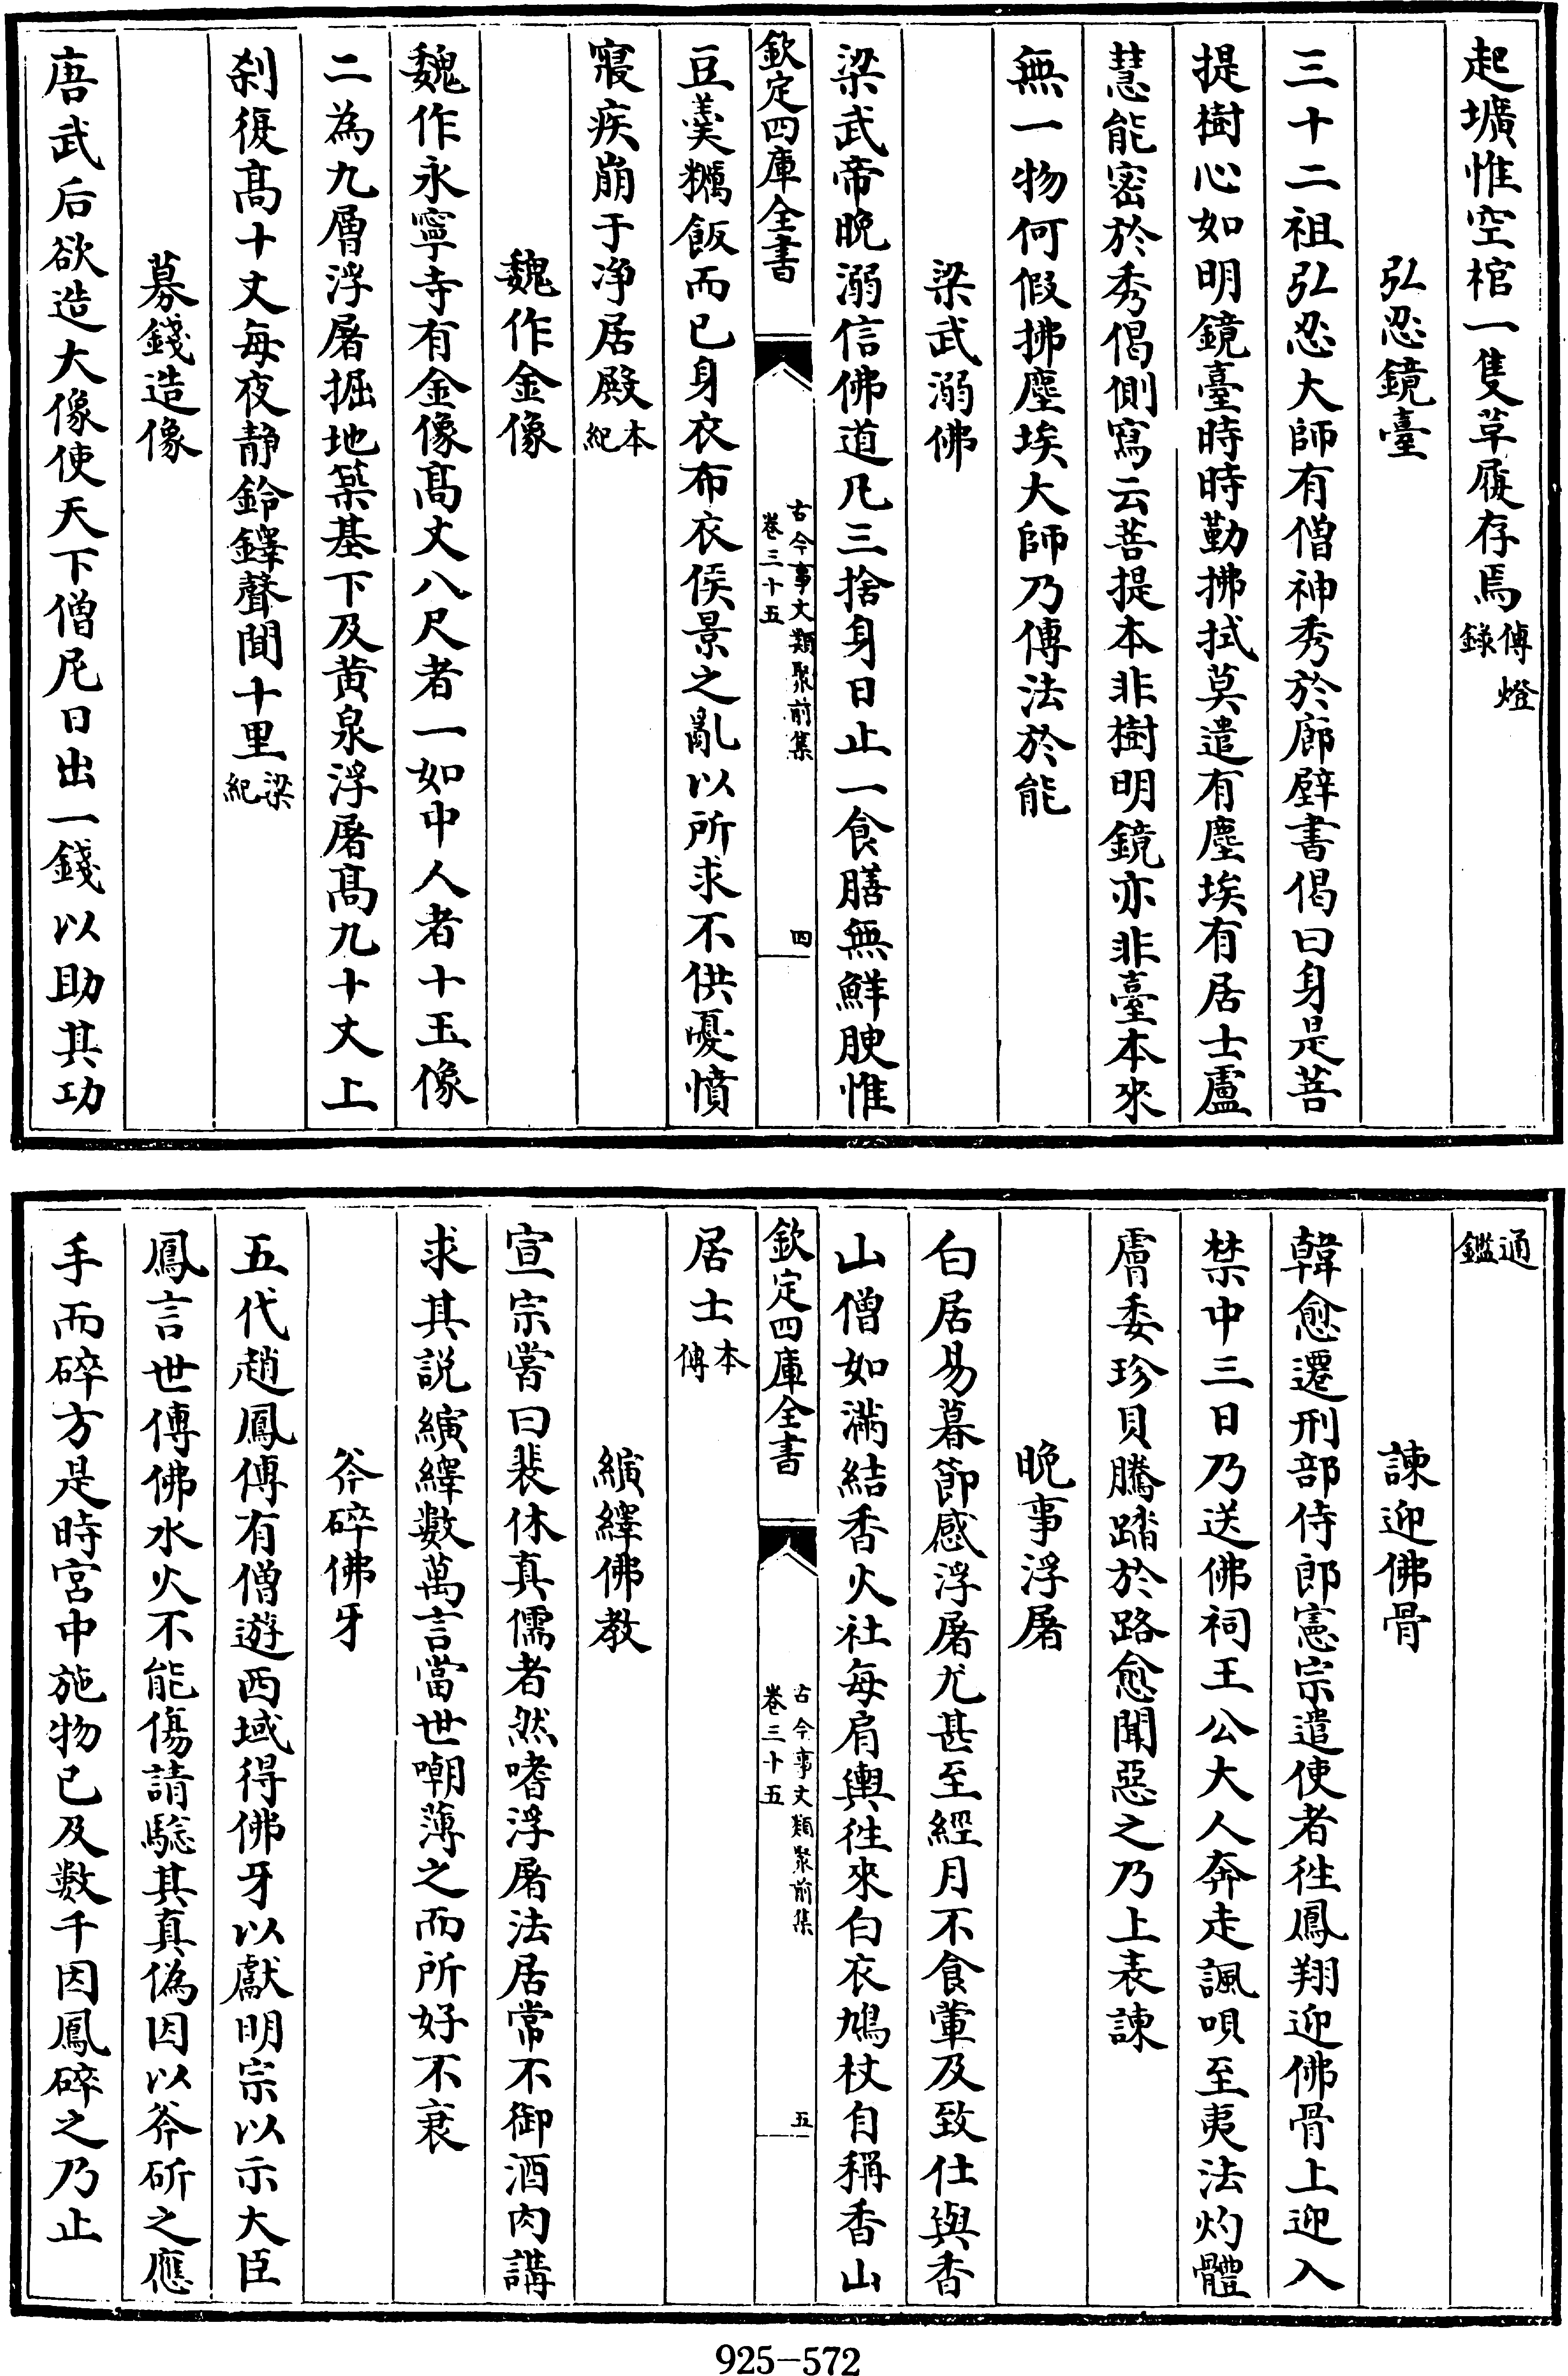 起壙惟空棺一隻草履存焉傳燈錄
弘忍鏡臺
三十二祖弘忍大師有僧神秀於廊壁書偈曰身是菩
提樹心如明鏡臺時時勤拂拭莫遣有塵埃有居士盧
慧能密於秀偈側寫云菩提本非樹明鏡亦非臺本來
無一物何假拂塵埃大師乃傳法於能
梁武溺佛
梁武帝晚溺信佛道凡三捨身日止一食膳無鮮腴惟
欽定四庫全書 古今事文類聚前集 卷三十五 四
豆羮糲飯而已身衣布衣侯景之亂以所求不供憂憤
寢疾崩于净居殿本紀
魏作金像
魏作永寧寺有金像髙丈八尺者一如中人者十玉像
二為九層浮屠掘地築基下及黄泉浮屠髙九十丈上
刹復髙十丈每夜静鈴鐸聲聞十里梁紀
募錢造像
唐武后欲造大像使天下僧尼日出一錢以助其功
通鑑
諫迎佛骨
韓愈遷刑部侍郎憲宗遣使者徃鳳翔迎佛骨上迎入
禁中三日乃送佛祠王公大人奔走諷唄至夷法灼體
膚委珍貝騰踏於路愈聞惡之乃上表諫
晚事浮屠
白居易暮節感浮屠尤甚至經月不食葷及致仕與香
山僧如滿結香火社每肩輿徃來白衣鳩杖自稱香山
欽定四庫全書 古今事文類聚前集 卷三十五 五
居士本傳
縯繹佛教
宣宗嘗曰裴休真儒者然嗜浮屠法居常不御酒肉講
求其説縯繹數萬言當世嘲薄之而所好不衰
斧碎佛牙
五代趙鳳傳有僧遊西域得佛牙以獻明宗以示大臣
鳳言世傳佛水火不能傷請騐其真偽因以斧斫之應
手而碎方是時宮中施物已及數千因鳳碎之乃止
925-572